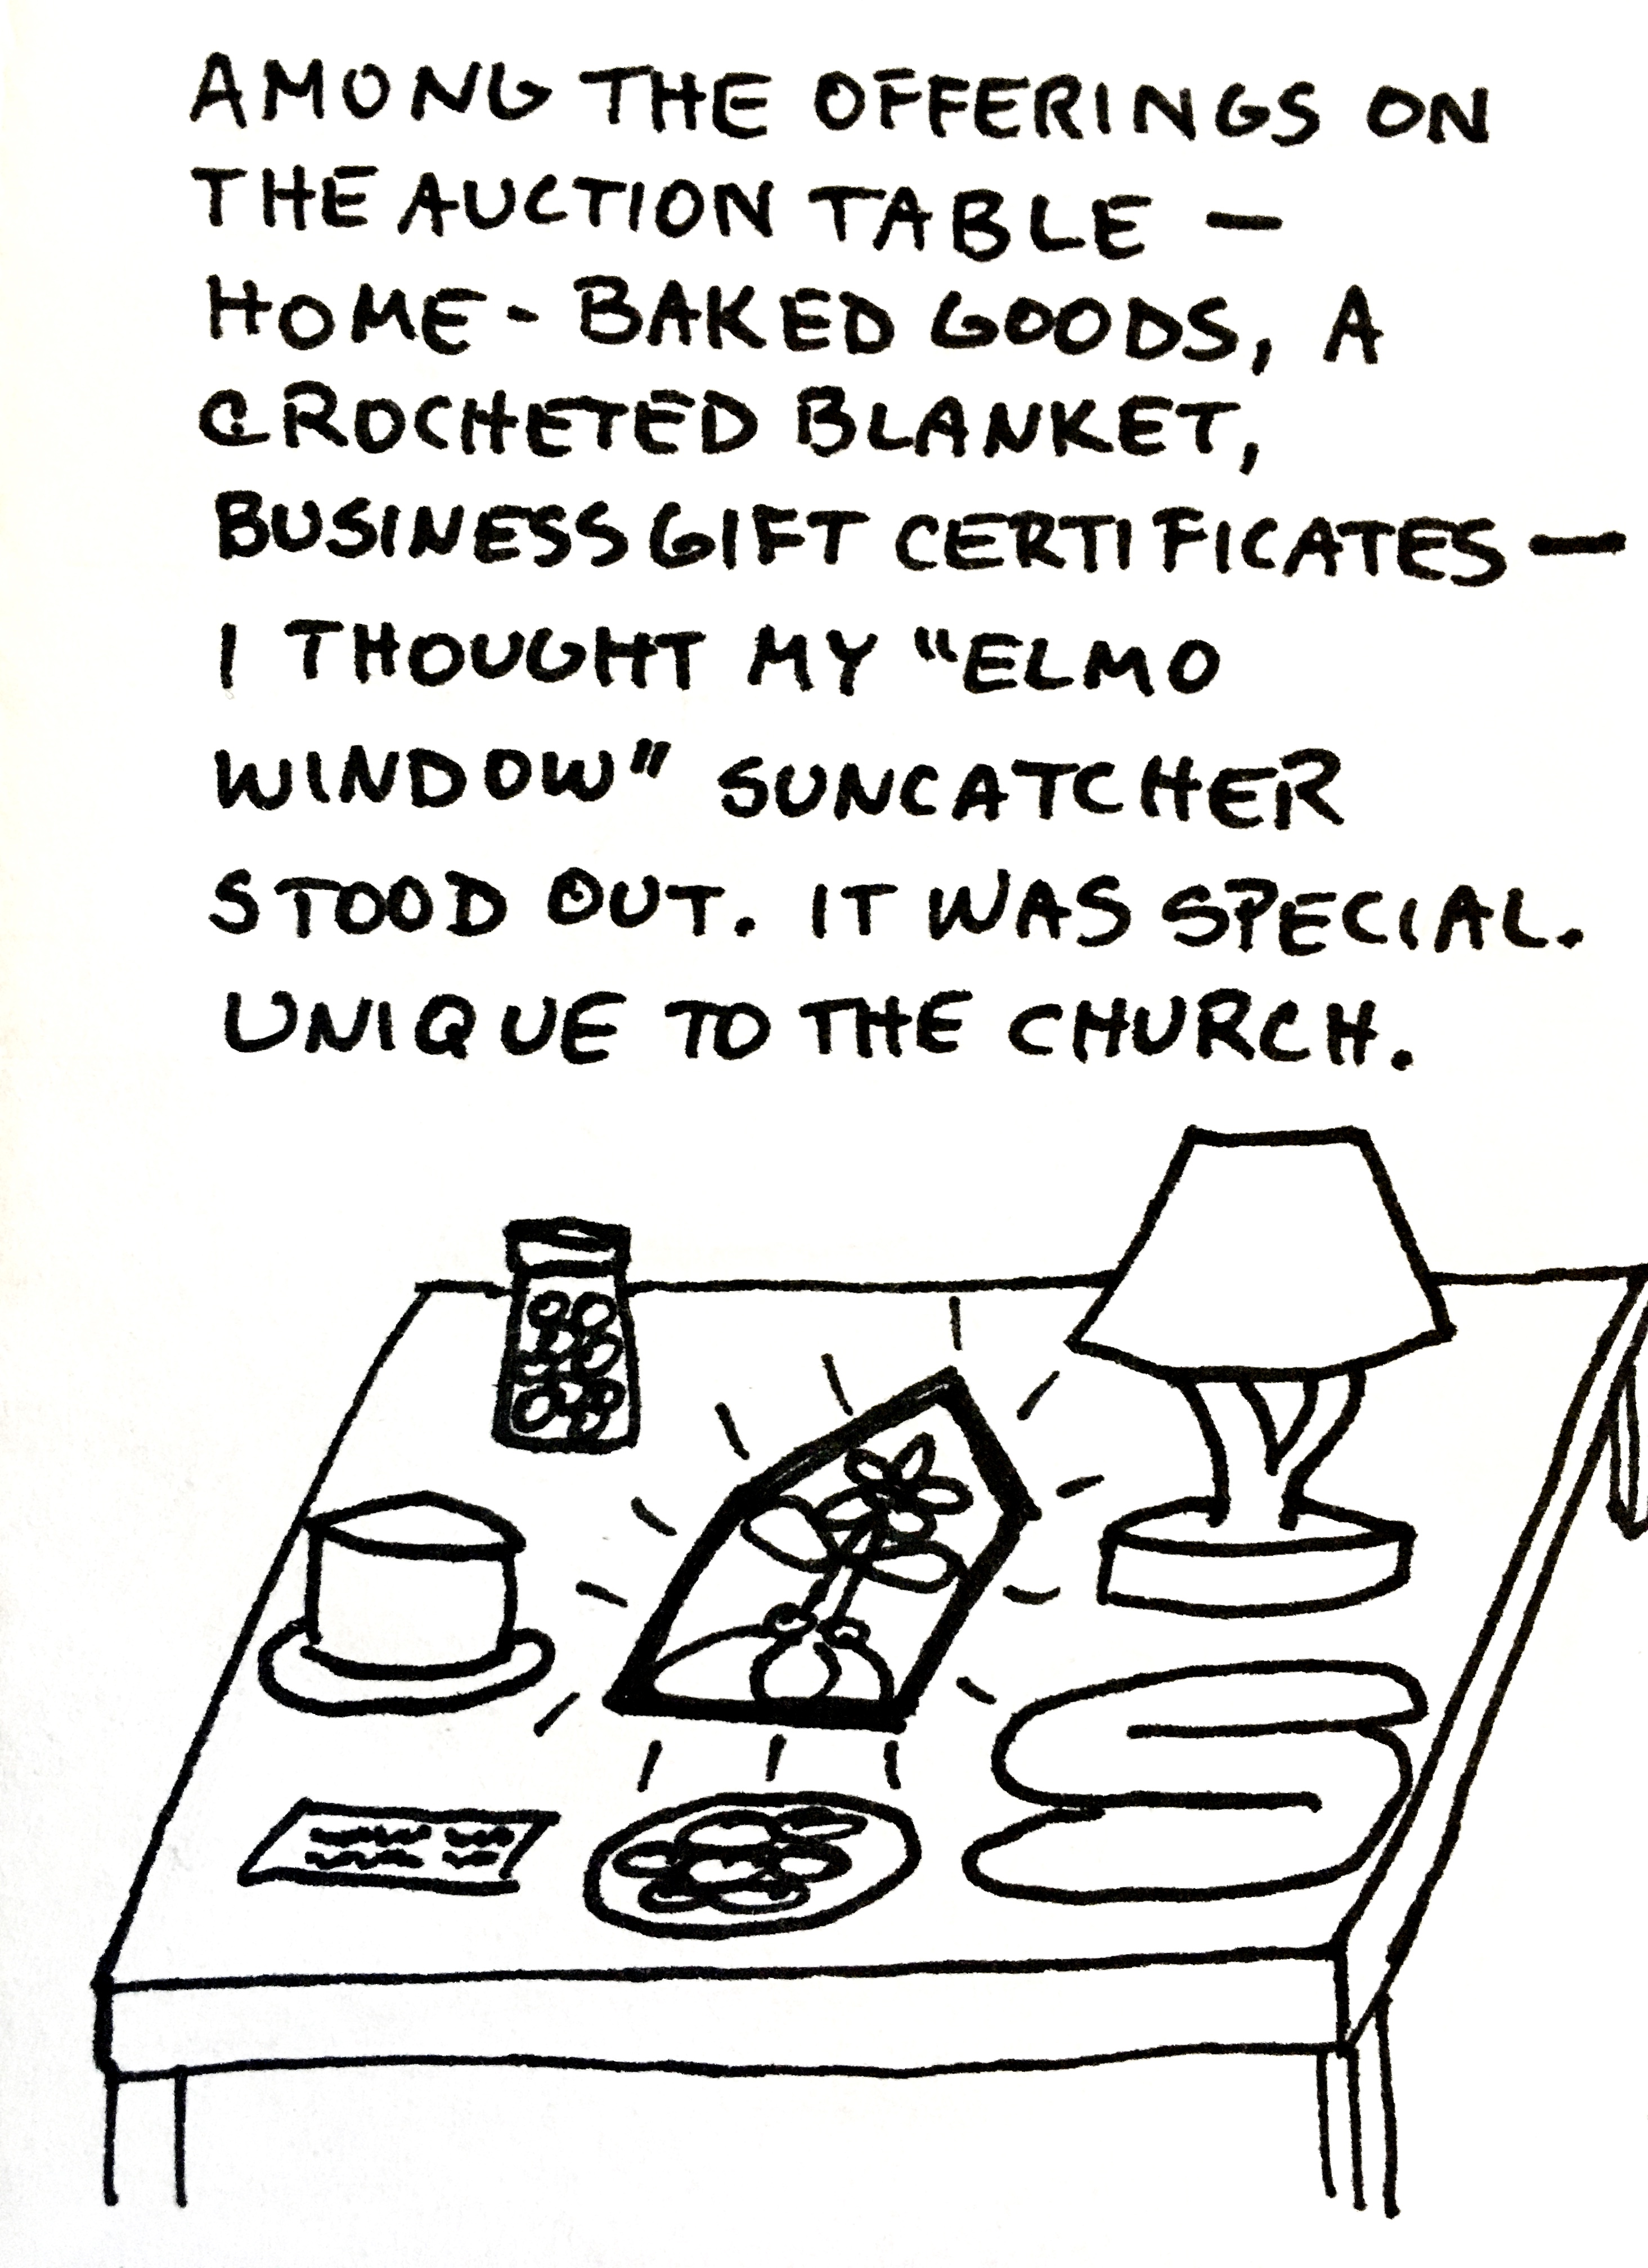 AMONG THE OFFERINGS ON
THE AUCTION TABLE —
HOME-BAKED GOODS, A
CROCHETED BLANKET,
BUSINESS GIFT CERTIFICATES —
I THOUGHT MY "ELMO
WINDOW" SUNCATCHER
STOOD OUT. IT WAS SPECIAL.
UNIQUE TO THE CHURCH.